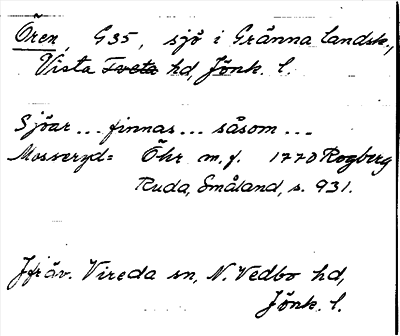 Ören, G35, sjö i Gränna landsk.,
Vista Tveta hd, Jönk. l.
Sjöar... finnas... såsom...
Mosseryd= Öhr m.f. 1770 Rogberg
Ruda, Småland, s. 931.
Jfräv. Vireda sn, N. Vedbo hd,
Jönk. l.